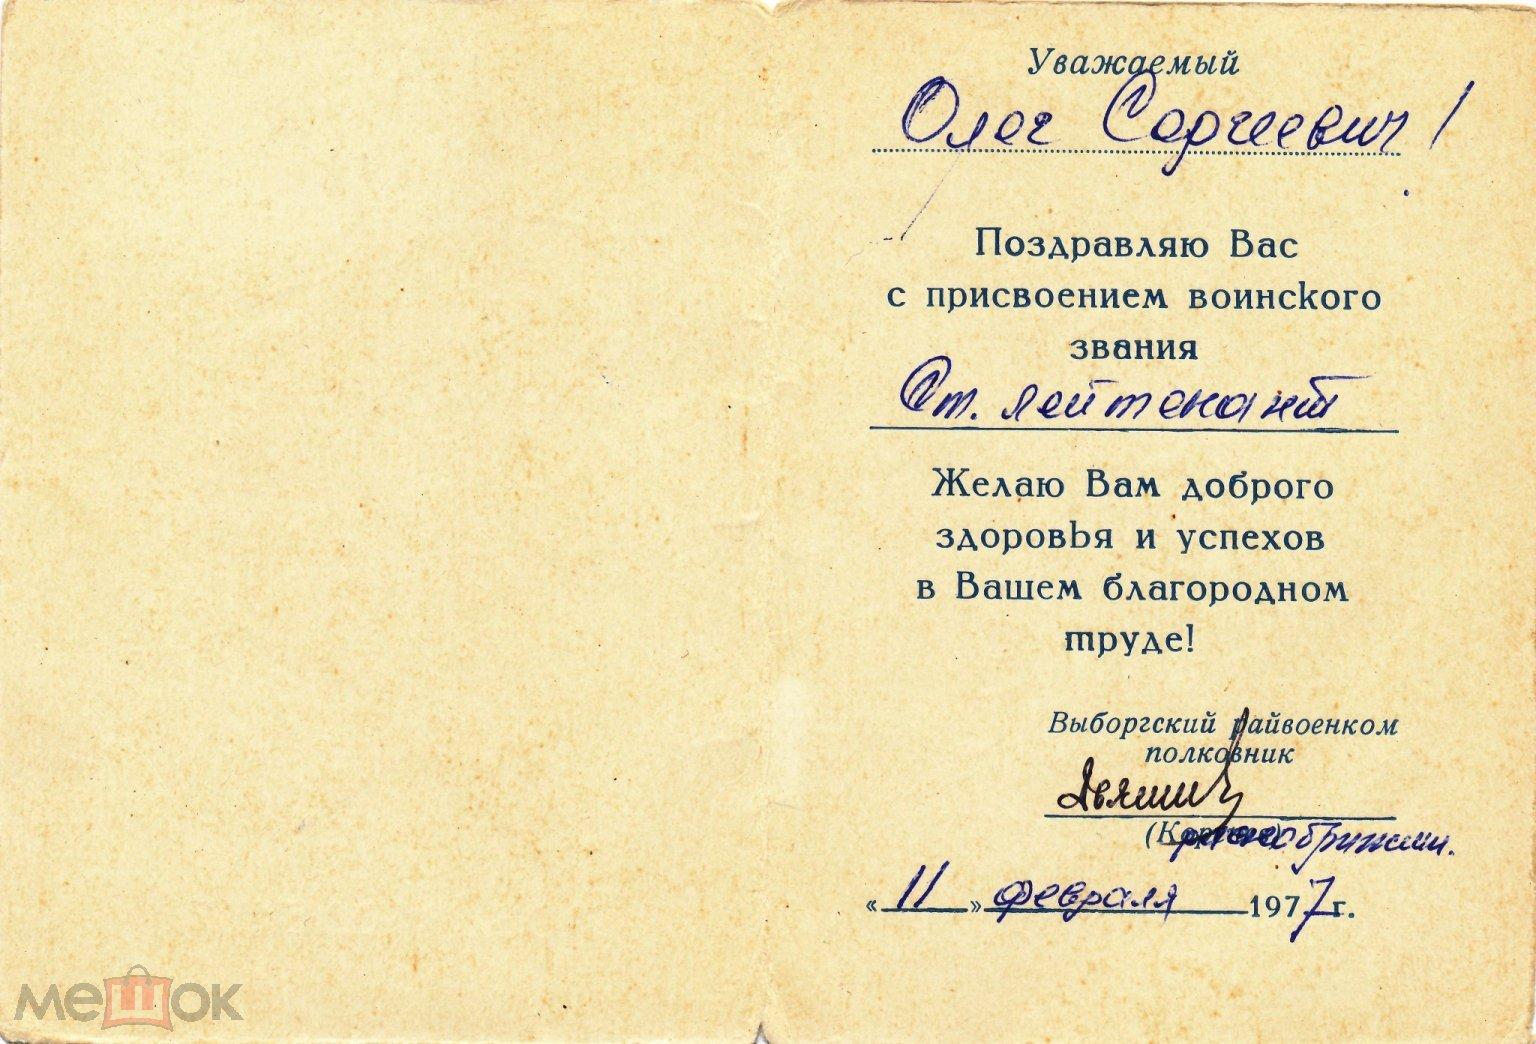 Уважаемый
Олег Сергеевич!
Поздравляю Вас
с присвоением воинского
звания
Ст. лейтенант
Желаю Вам доброго
здоровья и успехов
в Вашем благородном
труде!
Выборгский райвоенком
полковник
«11» февраля 1977 г.
мешок